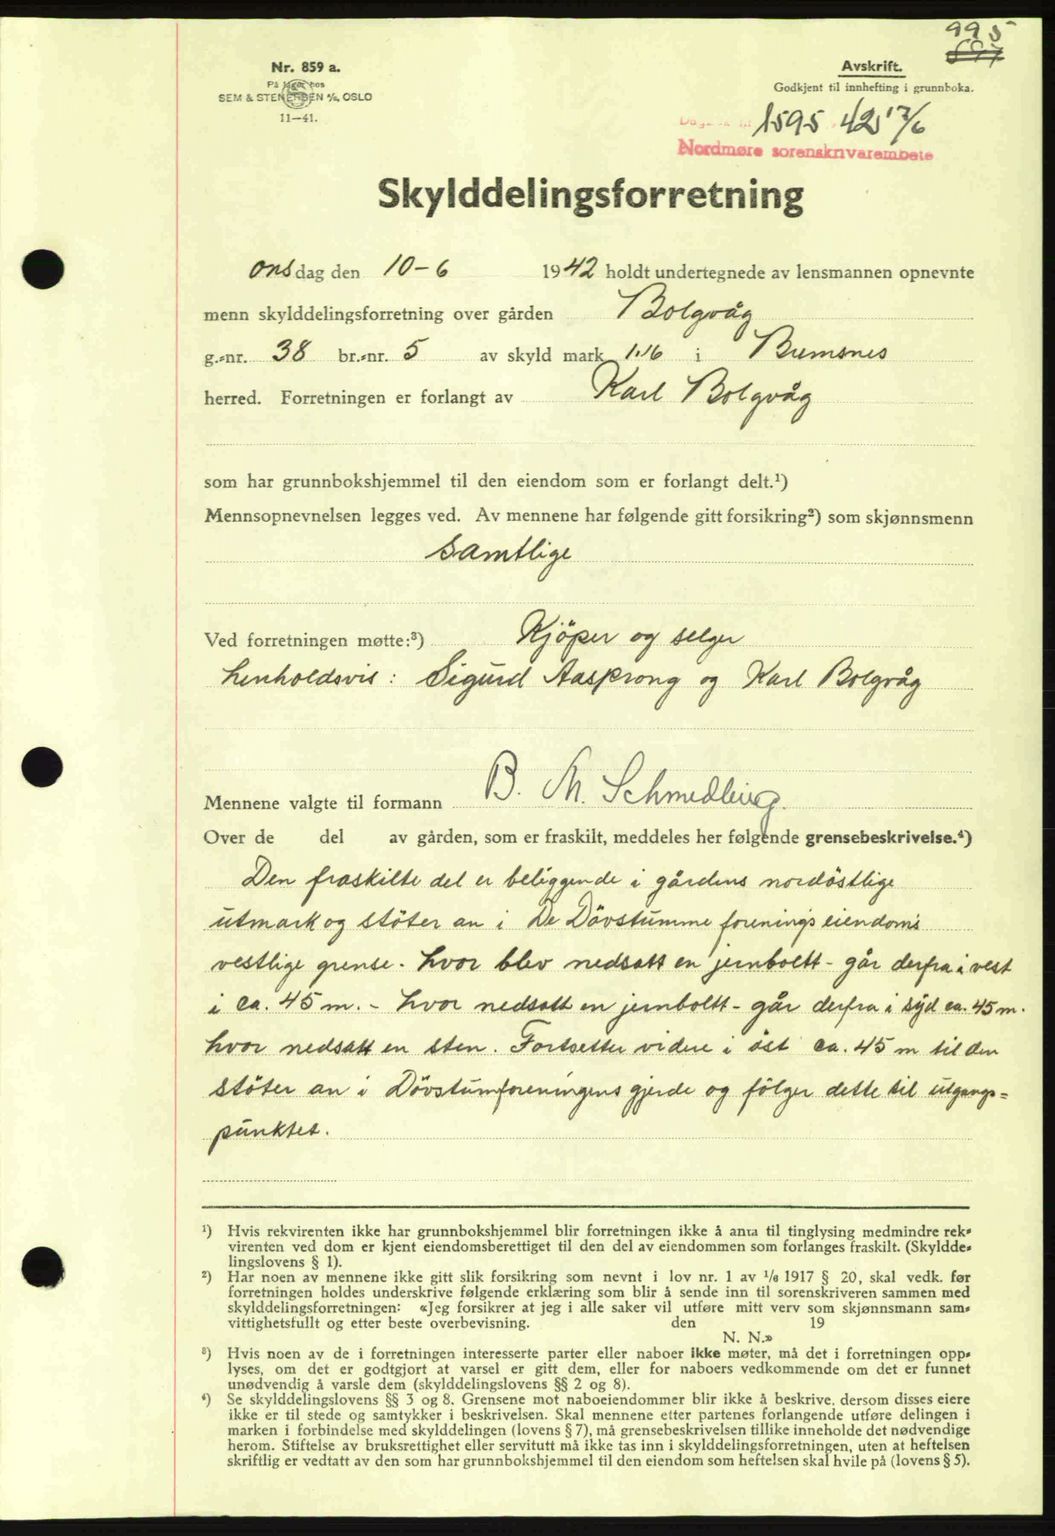 995
Nr. 859 a.
På lager hos
SEM & STENERSEN A/S, OSLO
11—41.
Avskrift.
Godkjent til innhefting i grunnboka.
1595 42 17/6
Nordmøre sorenskrivarembete
Skylddelingsforretning
onsdag den 10-6 1942 holdt undertegnede av lensmannen opnevnte
menn skylddelingsforretning over gården Bolgvåg
g.-nr. 38 br.-nr. 5 av skyld mark 1.16 i Bremsnes
herred. Forretningen er forlangt av Karl Bolgvåg
som har grunnbokshjemmel til den eiendom som er forlangt delt.¹)
Mennsopnevnelsen legges ved. Av mennene har følgende gitt forsikring²) som skjønnsmenn
samtlige
Ved forretningen møtte:³) Kjöper og selger
henholdsvis: Sigurd Aasprong og Karl Bolgvåg
Mennene valgte til formann B. M. Schmedling.
Over de del av gården, som er fraskilt, meddeles her følgende grensebeskrivelse.⁴)
Den fraskilte del er beliggende i gårdens nordöstlige
utmark og stöter an i De Dövstumme forenings eiendoms
vestlige grense. hvor blev nedsatt en jernboltt - går derfra i vest
i ca. 45 m. - hvor nedsatt en jernboltt - går derfra i syd ca. 45 m.
hvor nedsatt en sten. Fortsetter videre i öst ca. 45 m til den
stöter an i Dövstumforeningens gjerde og fölger dette til utgangs=
punktet.
¹) Hvis rekvirenten ikke har grunnbokshjemmel blir forretningen ikke å anta til tinglysing medmindre rek-
virenten ved dom er kjent eiendomsberettiget til den del av eiendommen som forlanges fraskilt. (Skyldde-
lingslovens § 1).
²) Har noen av mennene ikke gitt slik forsikring som nevnt i lov nr. 1 av 1/6 1917 § 20, skal vedk. før
forretningen holdes underskrive følgende erklæring som blir å sende inn til sorenskriveren sammen med
skylddelingsforretningen: «Jeg forsikrer at jeg i alle saker vil utføre mitt verv som skjønnsmann sam-
vittighetsfullt og etter beste overbevisning. den 19
N. N.»
³) Hvis noen av de i forretningen interesserte parter eller naboer ikke møter, må det i forretningen opp-
lyses, om det er godtgjort at varsel er gitt dem, eller for naboers vedkommende om det er funnet
unødvendig å varsle dem (skylddelingslovens §§ 2 og 8).
⁴) Se skylddelingslovens §§ 3 og 8. Grensene mot naboeiendommer blir ikke å beskrive. dersom disses eiere
ikke er til stede og samtykker i beskrivelsen. Skal mennene etter partenes forlangende utføre delingen i
marken i forbindelse med skylddelingen (lovens § 7), må grensebeskrivelsen tillike inneholde det nødvendige
herom. Stiftelse av bruksrettighet eller servitutt må ikke tas inn i skylddelingsforretningen, uten at heftelsen
skriftlig er vedtatt av den som har grunnbokshjemmel til den eiendom som heftelsen skal hvile på (lovens § 5).